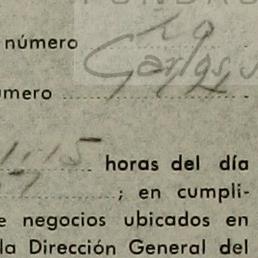 número
Carlos
úmero
horas del día
; en cumpli-
e negocios ubicados en
la Dirección General del